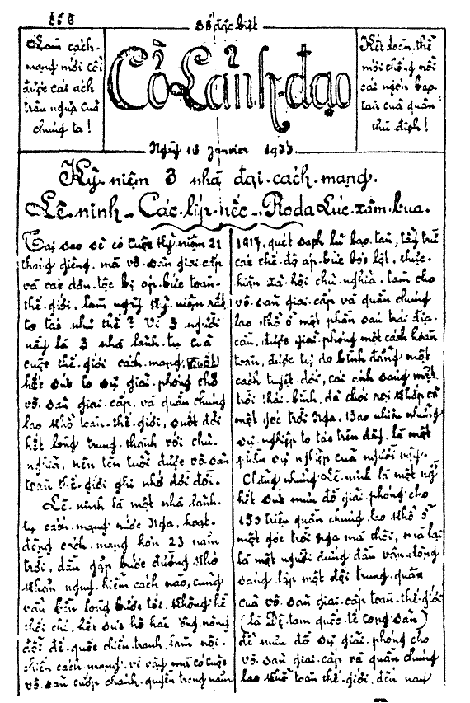 Số đặc biệt
Làm cách-
mạng mới cởi
được cái ách
trâu ngựa của
chúng ta!
Cờ-Lãnh-đạo
Kết đoàn thể
mới chống nổi
cái nạn bạo
tàn của quân
thù địch!
Ngày 16 Janvier 1933
Kỷ niệm 3 nhà đại cách-mạng.
Lê-ninh - Các-líp-nếc - Rôda Lúc-xăm-bua.
Tại sao sẽ có cuộc kỷ niệm 21
tháng giêng, mà vô-sản giai cấp
và các dân tộc bị áp-bức toàn-
thế giới, làm ngày kỷ niệm rất
to tát như thế? Vì 3 người
này là 3 nhà lãnh-tụ của
cuộc thế giới cách mạng,
hết sức lo sự giải-phóng cho
vô-sản giai cấp và quần chúng
lao khổ toàn-thế giới, suốt đời
hết lòng trung-thành với chủ-
nghĩa, nên tên tuổi được vô-sản
toàn thế-giới ghi nhớ đời đời.
Lê-ninh là một nhà lãnh-
tụ cách-mạng nước Nga, hoạt-
động cách-mạng hơn 23 năm
trời, dầu gặp bước đường khó
khăn nguy-hiểm cách nào, cũng
vẫn bền lòng bước tới. Không hề
thối chí, hết sức hô hào ủng hộ
đổi đế-quốc chiến-tranh làm nội-
chiến cách-mạng; vì vậy mà có cuộc
vô-sản cướp chánh-quyền trong năm
1917, quét sạch lũ bạo-tàn, lấy trừ
các chế-độ áp-bức bóc lột, thực-
hiện xã-hội chủ-nghĩa, làm cho
vô-sản giai-cấp và quần chúng
lao-khổ ở một phần sáu trái địa-
cầu, được giải-phóng một cách hoàn
toàn, được tự do bình đẳng một
cách tuyệt đối, cái ánh sáng mặt
trời thái-bình, đã chói rọi khắp cả
một góc trời Nga. Bao nhiêu những
sự nghiệp to tát trên đây, là một
phần sự nghiệp của người này.
Chẳng những Lê-ninh là một người
hết sức mưu đồ giải phóng cho
150 triệu quần chúng lao khổ ở
một góc trời Nga mà thôi, mà lại
là một người đứng đầu vận-động
sáng lập một đội trung-quân
của vô-sản giai-cấp toàn-thế-giới
(là Đệ tam quốc tế cộng sản)
để mưu đồ sự giải-phóng cho
vô-sản giai-cấp và quần chúng
lao khổ toàn thế-giới, đến nay